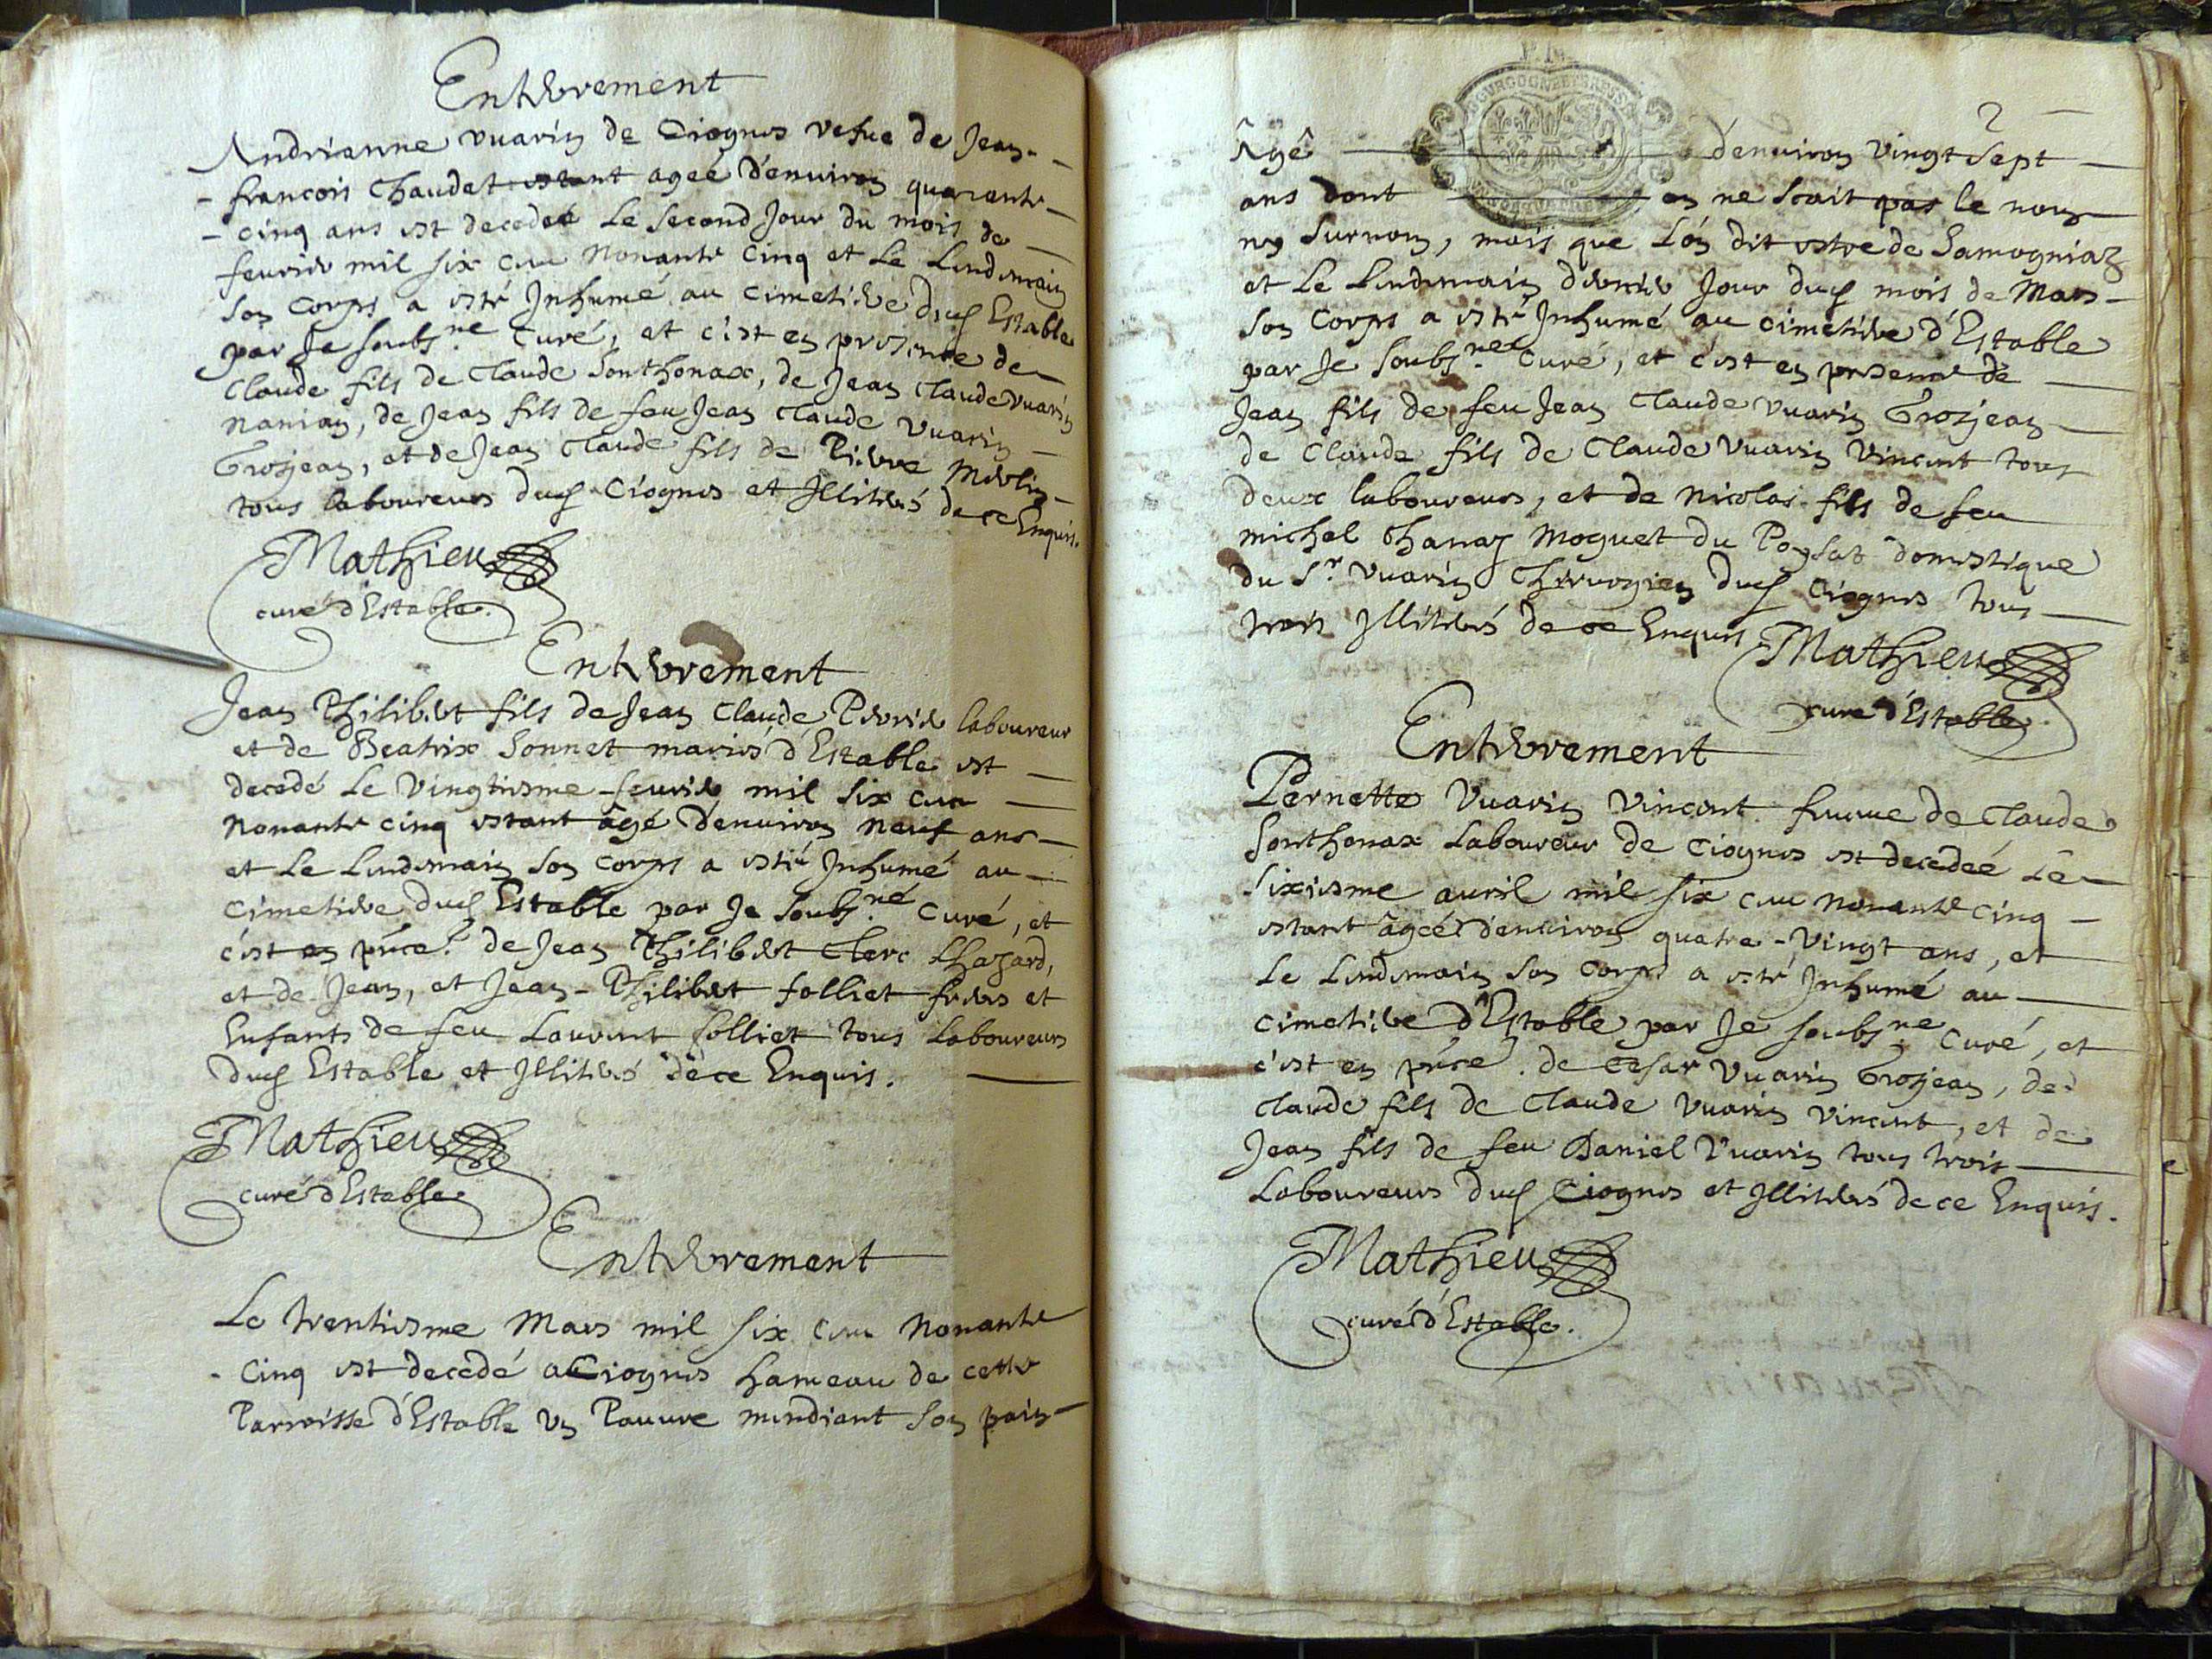 Enterrement
Andrianne vuarin de Ciognes vefue de Jean-
- francois Chaudet estant ageé d'enuiron quarente-
- cinq ans est decedeé Le second Jour du mois de
feurier mil six cent nonante cinq et Le Lendemain
son corps a esté Jnhumé au cimetiere dud Estable
par Je soubs.né Curé, et c'est en presence de
Claude fils de Claude Sonthonax, de Jean Claude vuarin
nanian, de Jean fils de feu Jean Claude vuarin
Grosjean, et de Jean Claude fils de Pierre Merlin
tous laboureurs dud Ciognes et Jlliterés de ce Enquis.
Mathieu
curé d'Estable.
Enterrement
Jean Philibert fils de Jean Claude Perrier laboureur
et de Beatrix Sonnet mariés d'Estable est
decedé Le vingtiesme feurier mil six cent
nonante cinq estant âgé d'enuiron neuf ans
et Le Lendemain son corps a esté Jnhumé au
cimetiere dud Estable par Je soubs.né Curé, et
c'est en pñce. de Jean Philibert Clerc Lhazard,
et de Jean, et Jean-Philibert folliet freres et
Enfants de feu Laurent folliet tous Laboureurs
dud Estable et Jlliterés de ce Enquis.
Mathieu
curé d'Estable
Enterrement
Le trentiesme Mars mil six cent Nonante
- Cinq est decedé a Ciognes hameau de cette
Parroisse d'Estable un Pauure mendiant son pain
2
BOURGOGNE ET BRESSE
Âgé d'enuiron vingt sept
ans dont on ne scait pas le nom
ny surnom, mais que L'on dit estre de Samogniaz
et Le Lendemain dernier Jour dud mois de Mars
son corps a esté Jnhumé au cimetiere d'Estable
par Je soubs.né Curé, et c'est en presence de
Jean fils de feu Jean Claude vuarin Grosjean
de Claude fils de Claude vuarin vincent tous
deux laboureurs, et de nicolas fils de feu
michel moguet du Poysat domestique
du Sr vuarin Chirurgien dud Ciognes tous
trois Jlliterés de ce Enquis
Mathieu
curé d'Estable.
Enterrement
Pernette Vuarin vincent femme de Claude
Sonthonax Laboureur de Ciognes est decedeé Le
sixiesme auril mil six cent nonante cinq
estant âgeé d'enuiron quatre-vingt ans, et
Le Lendemain son corps a esté Jnhumé au
cimetiere d'Estable par Je soubs.né Curé, et
c'est en pñce. de Cesar vuarin Grosjean, de
Claude fils de Claude vuarin vincent, et de
Jean fils de feu Daniel vuarin tous trois
Laboureurs dud Ciognes et Jlliterés de ce Enquis.
Mathieu
curé d'Estable.